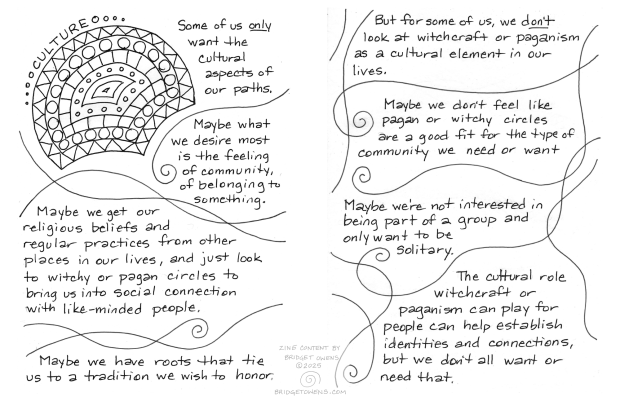 CULTURE
Some of us only
want the
cultural
aspects of
our paths.
Maybe what
we desire most
is the feeling
of community,
of belonging to
something.
Maybe we get our
religious beliefs and
regular practices from other
places in our lives, and just look
to witchy or pagan circles to
bring us into social connection
with like-minded people.
Maybe we have roots that tie
us to a tradition we wish to honor.
But for some of us, we don't
look at witchcraft or paganism
as a cultural element in our
lives.
Maybe we don't feel like
pagan or witchy circles
are a good fit for the type of
community we need or want
Maybe we're not interested in
being part of a group and
only want to be
solitary.
The cultural role
witchcraft or
paganism can play for
people can help establish
identities and connections,
but we don't all want or
need that.
ZINE CONTENT BY
BRIDGET OWENS
©2025
BRIDGETOWENS.COM